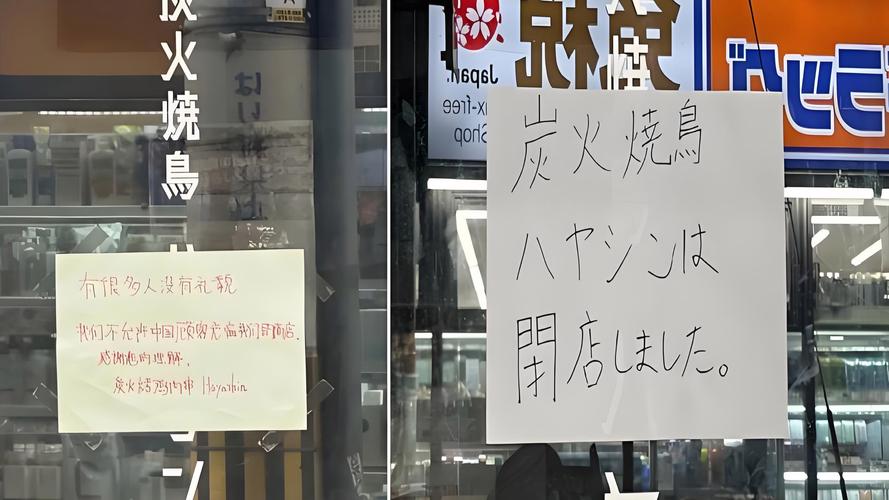 炭火焼鳥
有很多人没有礼貌
我们不允许中国顾客光临我们的商店.
感谢您的理解.
炭火烤鸡肉串 Hayashin
ン
免税
Japan.
ax-free
Shop
ラッグ
焼
炭火焼鳥
ハヤシンは
閉店しました。